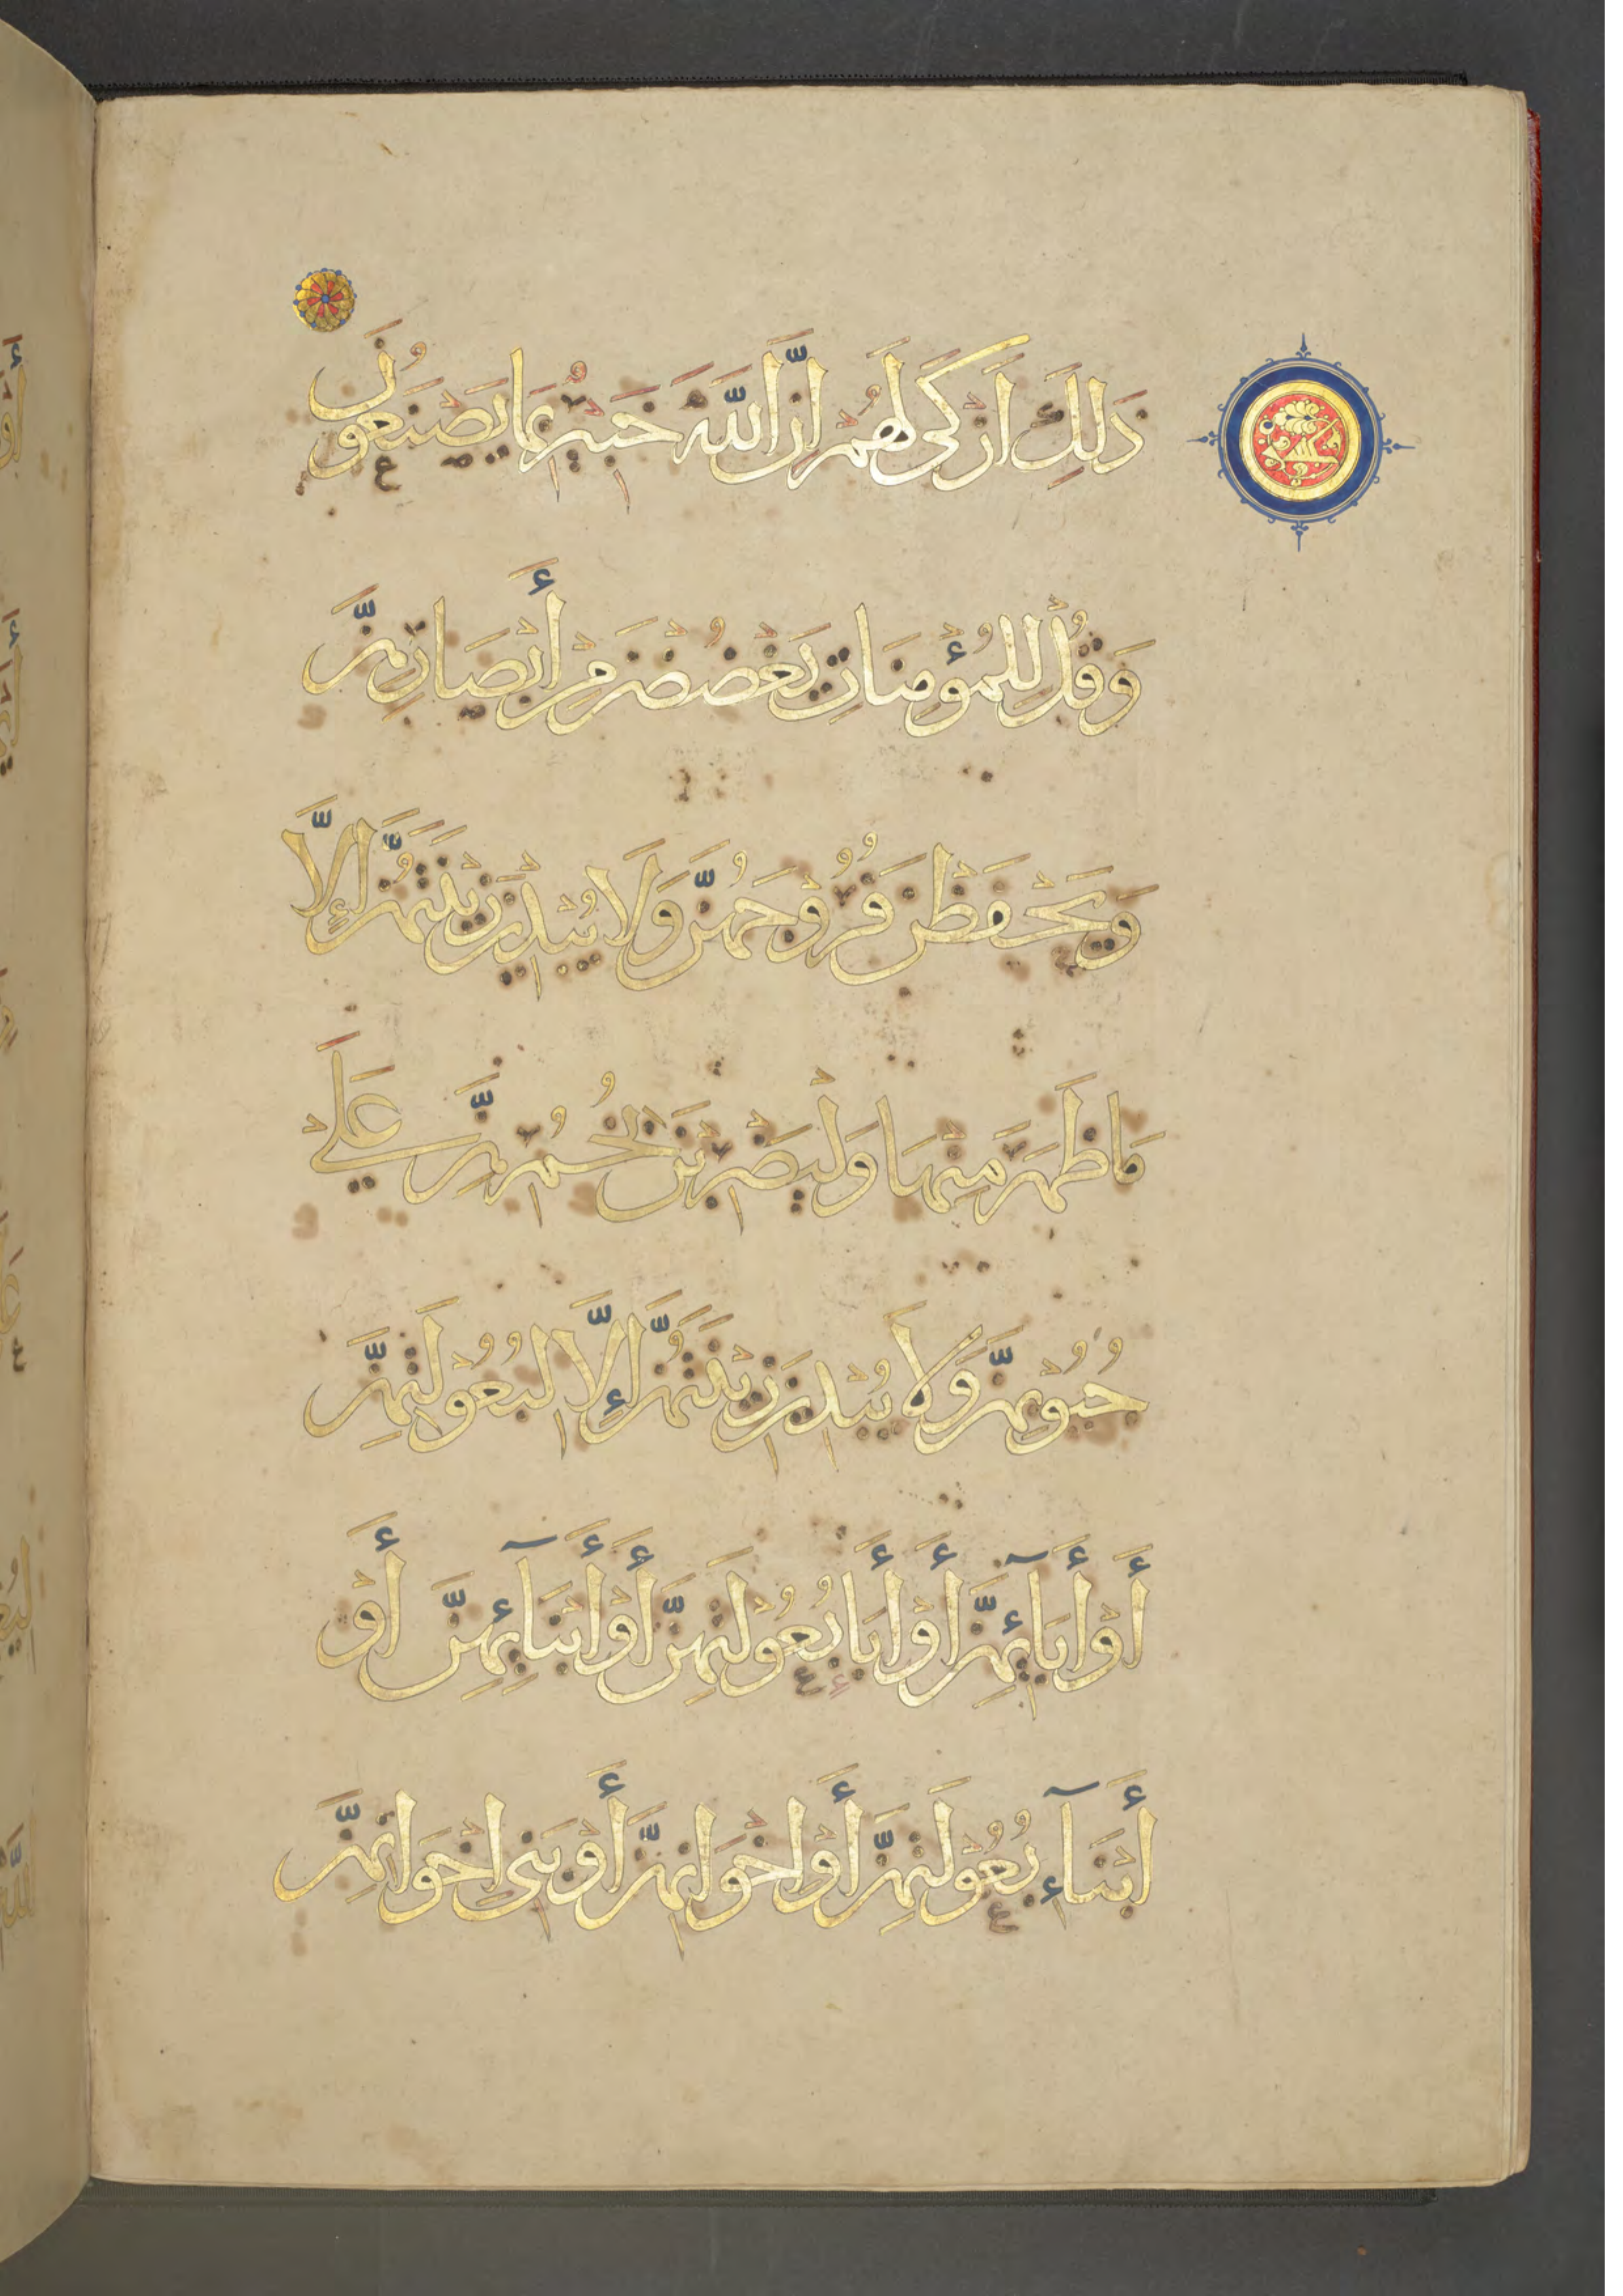 ذَلِكَ اَزْكَى لَهُمْ اِنَّ اللَّهَ خَبِيرٌ بِمَا يَصْنَعُونَ
وَقُلْ لِلْمُؤْمِنَاتِ يَغْضُضْنَ مِنْ أَبْصَارِهِنَّ
وَيَحْفَظْنَ فُرُوْجَهُنَّ وَلَا يُبْدِيْنَ زِيْنَتَهُنَّ إِلَّا
مَا ظَهَرَ مِنْهَا وَلْيَضْرِبْنَ بِخُمُرِهِنَّ عَلَىْ
جُيُوْبِهِنَّ وَلَا يُبْدِيْنَ زِيْنَتَهُنَّ إِلَّا لِبُعُوْلَتِهِنَّ
أَوْ أَبَآئِهِنَّ أَوْ أَبَآءِ بُعُوْلَتِهِنَّ أَوْ أَبْنَآئِهِنَّ أَوْ
أَبْنَآءِ بُعُوْلَتِهِنَّ أَوْ اِخْوَانِهِنَّ أَوْ بَنِى اِخْوَانِهِنَّ